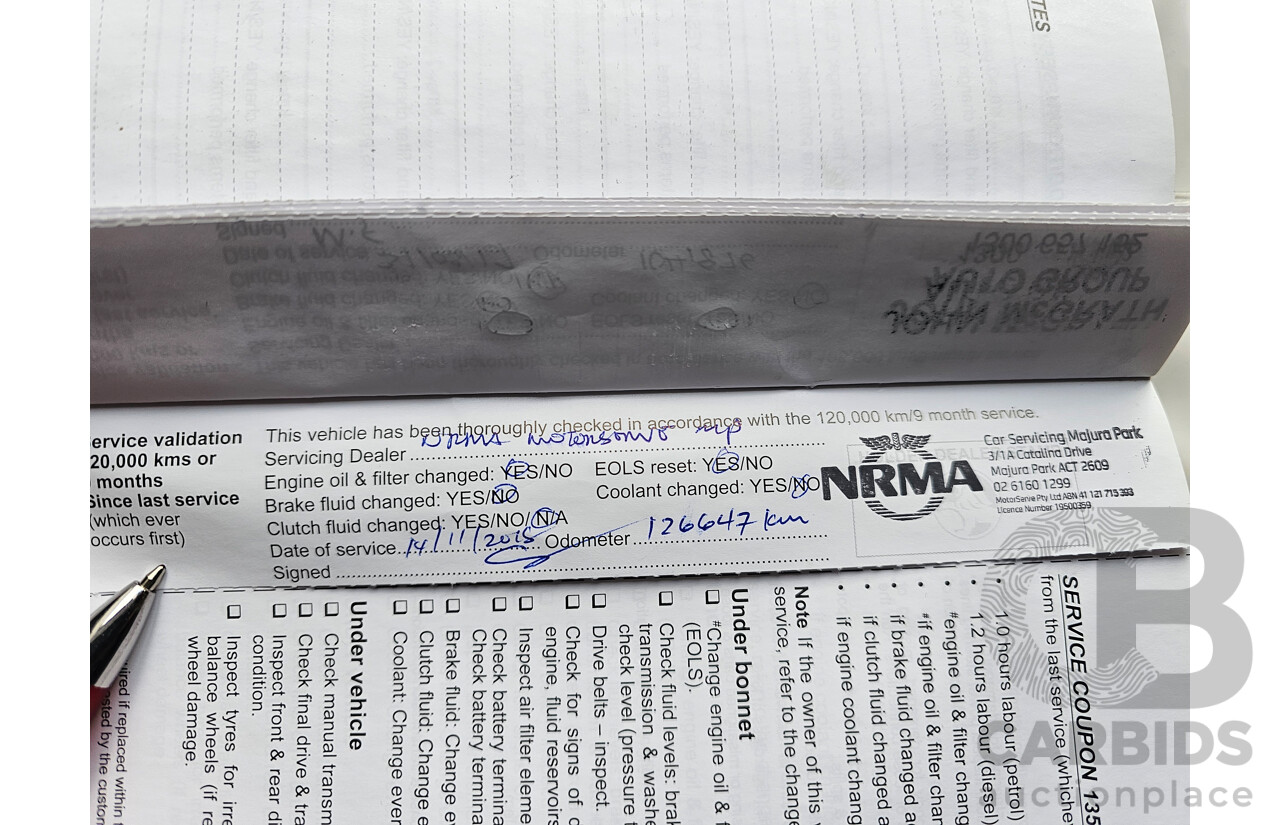 TES
Signed
Date of service
Odometer
Clutch fluid changed: YES/NO
Brake fluid changed: YES
Coolant changed: YES/NO
1300 657 162
AUTO GROUP
JOHN McGRATH
ervice validation
20,000 kms or
months
Since last service
(which ever
occurs first)
This vehicle has been thoroughly checked in accordance with the 120,000 km/9 month service.
Servicing Dealer NRMA Motorserve MP
Engine oil & filter changed: YES/NO EOLS reset: YES/NO
Brake fluid changed: YES/NO Coolant changed: YES/NO
Clutch fluid changed: YES/NO/N/A
Date of service 14/11/2015 Odometer 126647 km
Signed
NRMA
Car Servicing Majura Park
3/1A Catalina Drive
Majura Park ACT 2609
02 6160 1299
MotorServe Pty Ltd ABN 41 121 715 393
Licence Number 19500359
SERVICE COUPON 135
from the last service (whichev
• 1.0 hours labour (petrol)
• 1.2 hours labour (diesel)
• #engine oil & filter chang
• #if engine oil & filter chan
• if brake fluid changed ad
• if clutch fluid changed a
• if engine coolant chang
Note If the owner of this v
service, refer to the change
Under bonnet
#Change engine oil & f
(EOLS).
Check fluid levels: brak
transmission & washe
check level (pressure t
Drive belts – inspect.
Check for signs of
engine, fluid reservoirs
Inspect air filter eleme
Check battery termina
Check battery termina
Brake fluid: Change ev
Clutch fluid: Change e
Coolant: Change ever
Under vehicle
Check manual transm
Check final drive & tra
Inspect front & rear di
condition.
Inspect tyres for irre
balance wheels (if re
wheel damage.
uired if replaced within
sted by the custom
CARBIDS
auctionplace